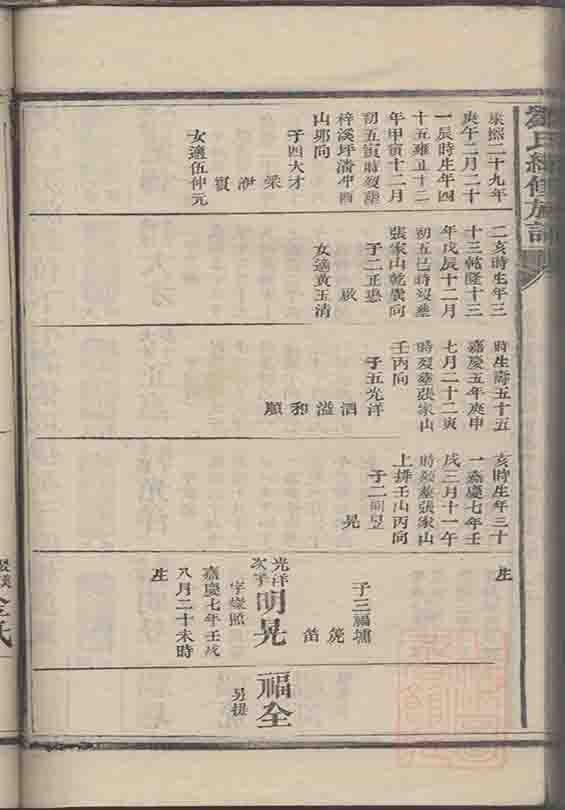 氏續修族譜
康熙二十九年
庚午二月二十
一辰時生年四
十五雍正十二
年甲寅十二月
初五寅時歿葬
梓溪坪清冲酉
山卯向
子四大才
榮
女適伍仲元
二亥時生年三
十三乾隆十三
年戊辰十二月
初五巳時歿葬
張家山乾巽向
子二正惠
啟
女適黃玉清
時生壽五十五
嘉慶五年庚申
七月二十二寅
時歿葬張家山
壬丙向
子五光洋
泗
溢
和
順
亥時生年三十
一嘉慶七年壬
戌三月十一午
時歿葬張家山
上排壬山丙向
子二明昱
晃
生
子三福墉
笛
光洋
次子
明晃
字燦照
嘉慶七年壬戌
八月二十未時
生
福全
另提